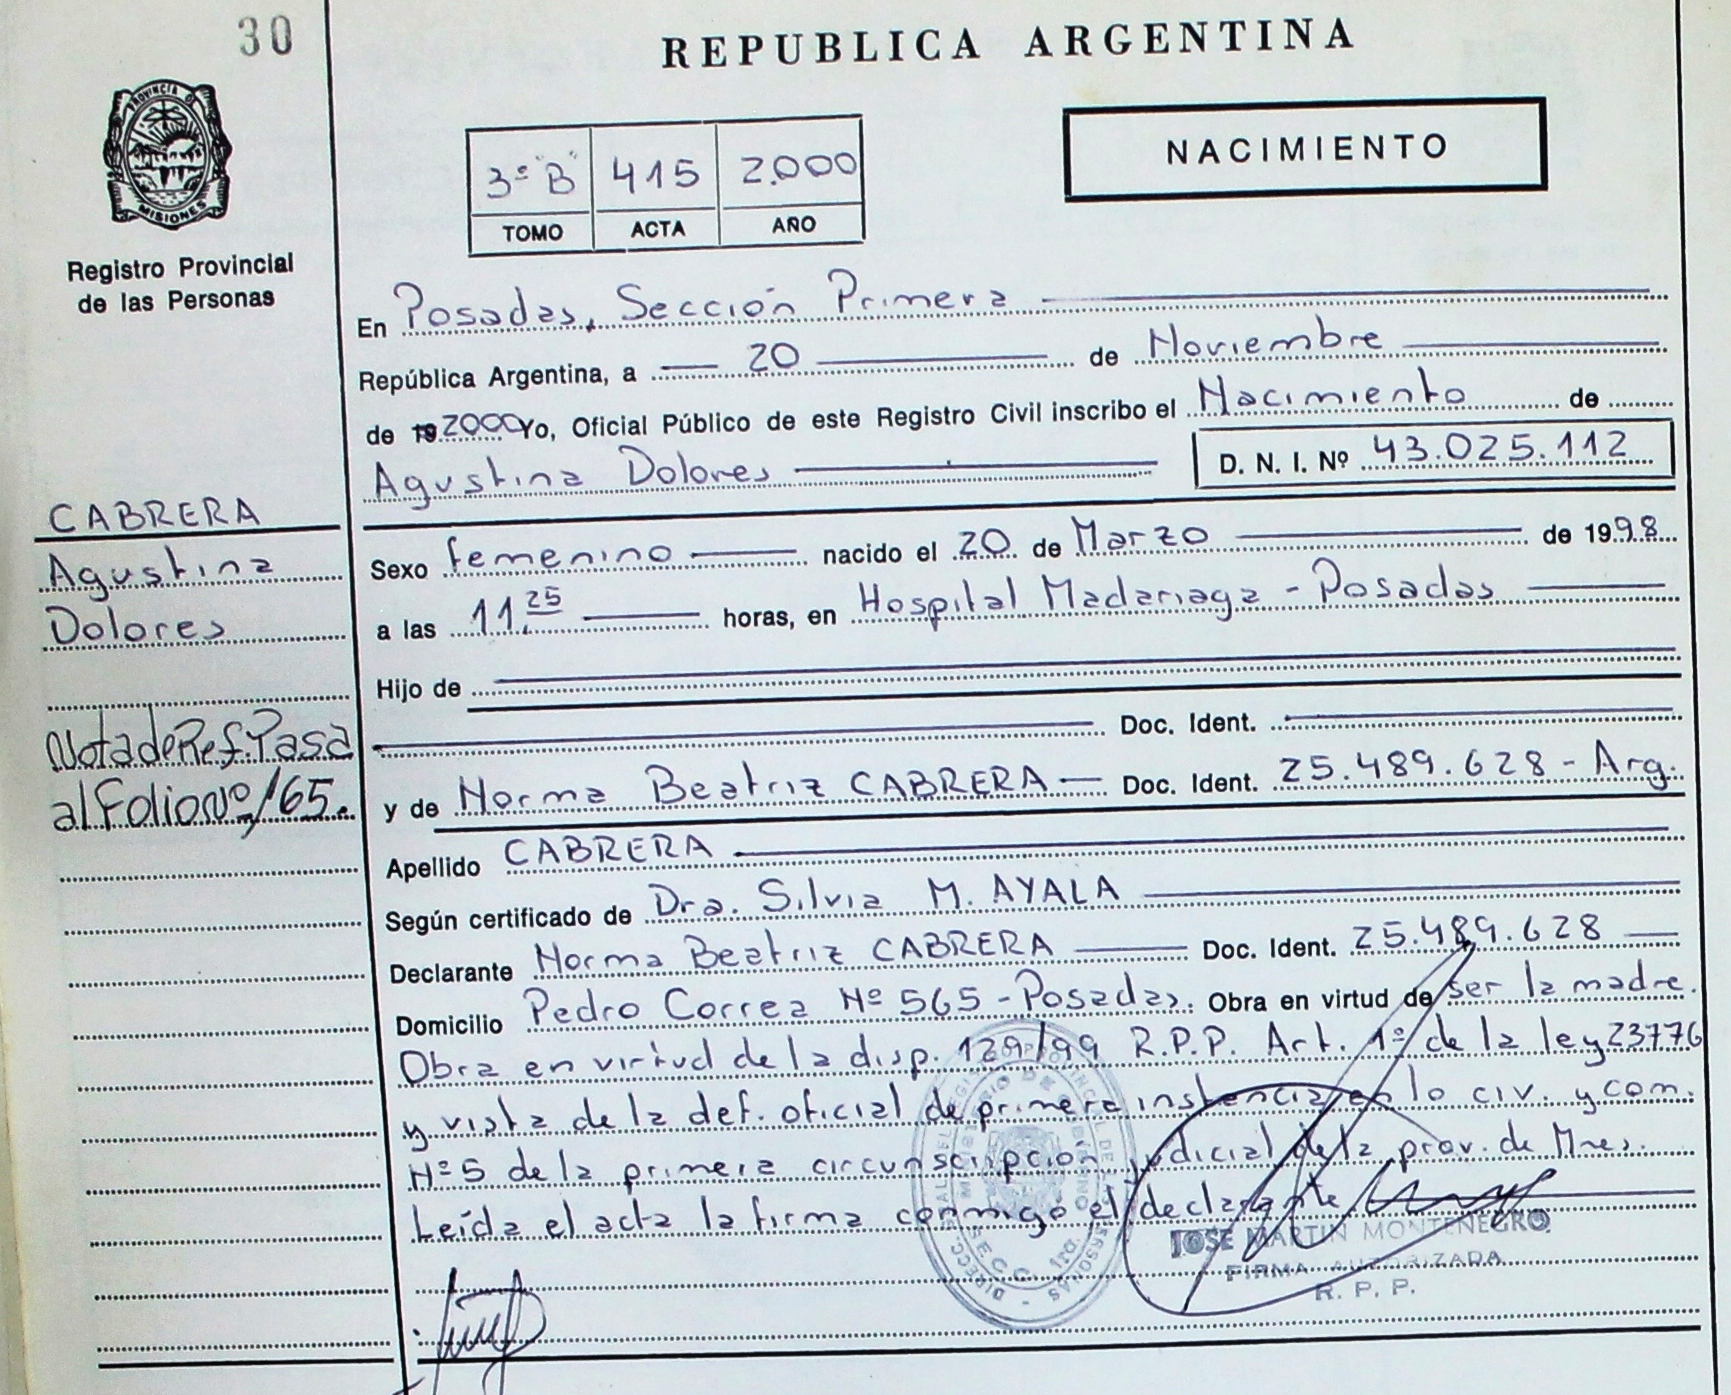 30
REPUBLICA ARGENTINA
PROVINCIA D
MISIONES
Registro Provincial
de las Personas
3º "B" 415 2.000
TOMO ACTA AÑO
NACIMIENTO
En Posadas, Sección Primera
República Argentina, a 20 de Noviembre
de 19 2000 Yo, Oficial Público de este Registro Civil inscribo el Nacimiento de
Agustina Dolores D. N. I. Nº 43.025.112
CABRERA
Agustina
Dolores
Nota de Ref. Pasa
al Folio Nº 165.
Sexo femenino nacido el 20 de Marzo de 1998
a las 11.25 horas, en Hospital Madariaga - Posadas
Hijo de
Doc. Ident.
y de Norma Beatriz CABRERA Doc. Ident. 25.489.628 - Arg.
Apellido CABRERA
Según certificado de Dra. Silvia M. AYALA
Declarante Norma Beatriz CABRERA Doc. Ident. 25.489.628
Domicilio Pedro Correa Nº 565 - Posadas. Obra en virtud de ser la madre.
Obra en virtud de la disp. 129/99 R.P.P. Art. 1º de la ley 23776
y vista de la def. oficial de primera instancia en lo civ. y com.
Nº 5 de la primera circunscripcion judicial de la prov. de Mnes.
Leída el acta la firma conmigo el declarante
JOSE MARTIN MONTENEGRO
FIRMA AUTORIZADA
R. P. P.